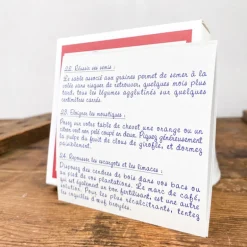 22. Réussir ses semis :
Le sable associé aux graines permet de semer à la
volée sans risque de retrouver, quelques mois plus
tard, tous les légumes agglutinés sur quelques
centimètres carrés.
23. Éloigner les moustiques :
Posez sur votre table de chevet une orange ou un
citron vert son petit coupé en deux. Piquez généreusement
la pulpe du fruit de clous de girofle, et dormez
paisiblement.
24. Repousser les escargots et les limaces :
Disposez des cendres de bois dans vos bacs ou
au pied de vos plantations. Le marc de café,
qui est également un bon fertilisant, est une autre
solution. Pour les plus récalcitrants, tentez
les coquilles d'œuf broyées.